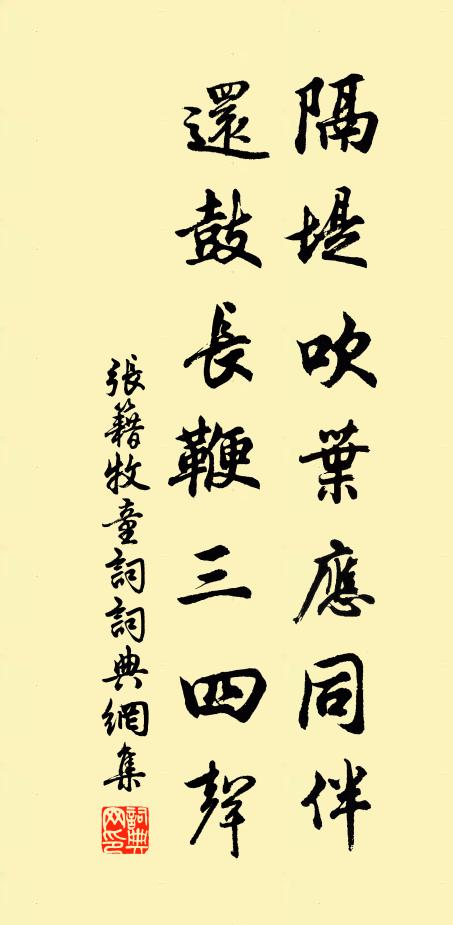 隔堤吹葉應同伴
還鼓長鞭三四聲
張籍牧童詞詞典網集
詞典網印